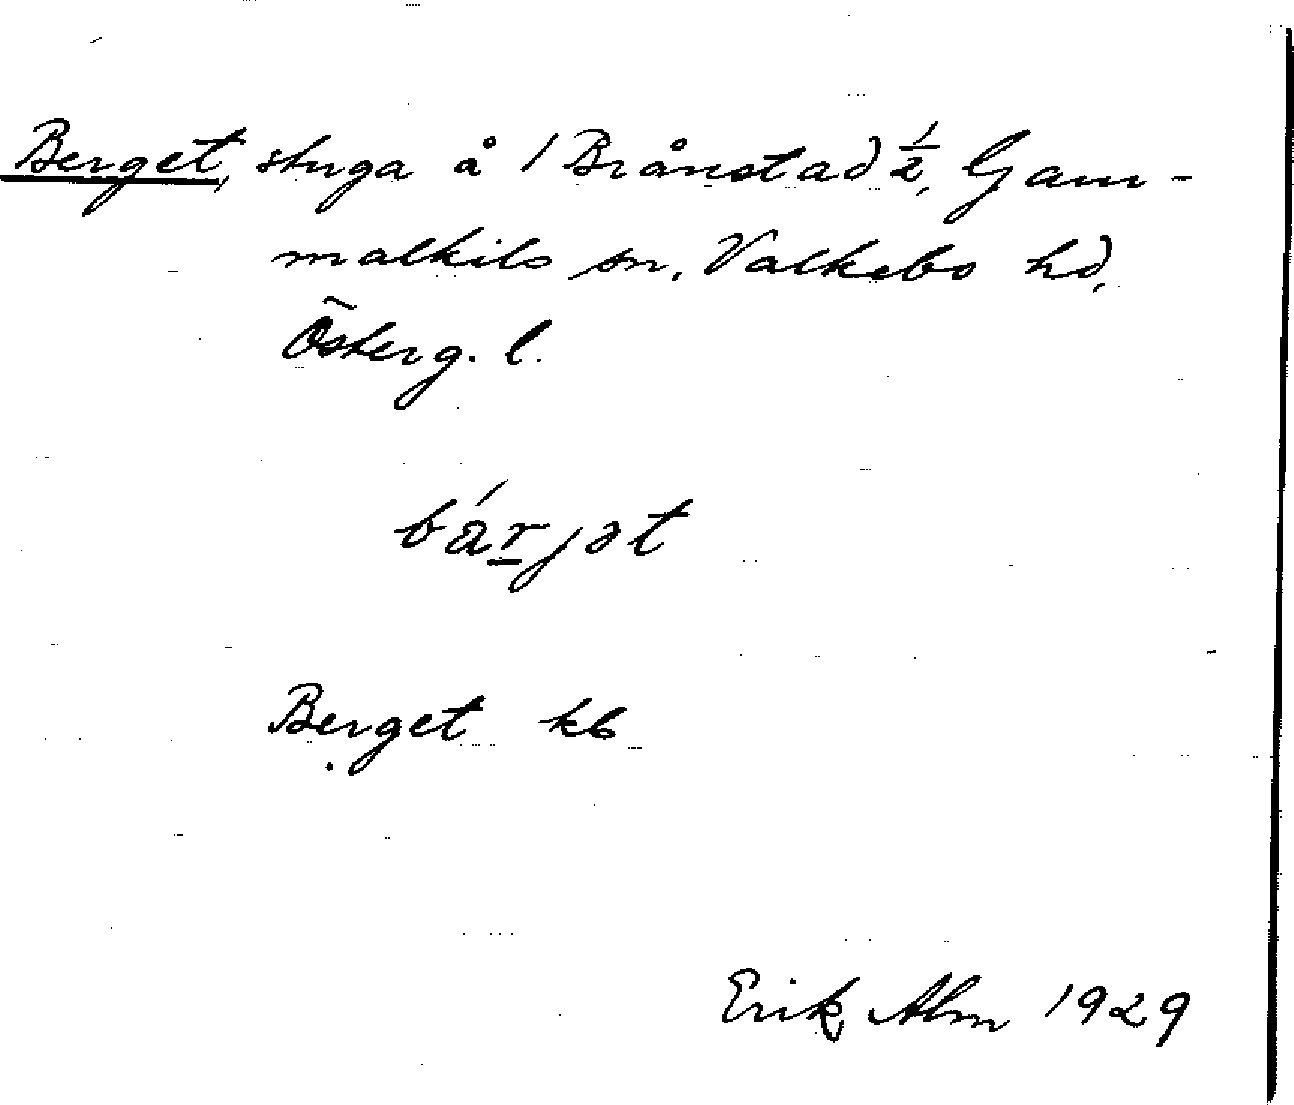 Berget, stuga å 1 Brånstad ½, Gam-
malkils sn, Valkebo hd,
Österg. l.
bárjət
Berget kb
Erik Alm 1929